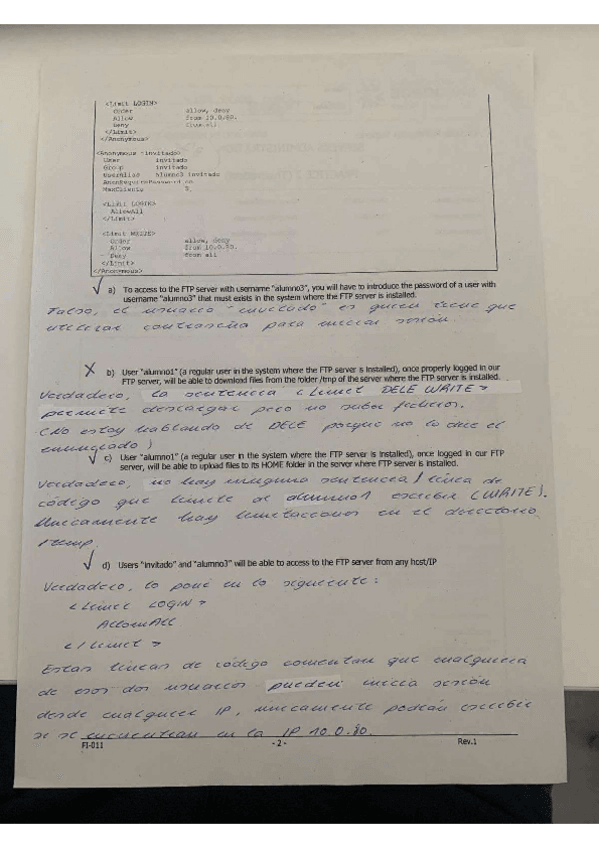 <Limit LOGIN>
Order allow, deny
Allow from 10.0.80.
Deny from all
</Limit>
</Anonymous>
<Anonymous ~invitado>
User invitado
Group invitado
UserAlias alumno3 invitado
AnonRequirePassword on
MaxClients 5
<Limit LOGIN>
AllowAll
</Limit>
<Limit WRITE>
Order allow, deny
Allow from 10.0.80.
Deny from all
</Limit>
</Anonymous>
√ a) To access to the FTP server with username "alumno3", you will have to introduce the password of a user with
username "alumno3" that must exists in the system where the FTP server is installed.
Falso, el usuario "invitado" es quien tiene que
utilizar contraseña para iniciar sesión.
X b) User "alumno1" (a regular user in the system where the FTP server is installed), once properly logged in our
FTP server, will be able to download files from the folder /tmp of the server where the FTP server is installed.
Verdadero, la sentencia <Limit DELE WRITE>
permite descargar pero no subir ficheros.
(No estoy hablando de DELE porque no lo dice el
enunciado)
√ c) User "alumno1" (a regular user in the system where the FTP server is installed), once logged in our FTP
server, will be able to upload files to its HOME folder in the server where FTP server is installed.
Verdadero, no hay ninguna sentencia / línea de
código que limite al alumno1 escribir (WRITE).
Únicamente hay limitaciones en el directorio
/tmp.
√ d) Users "invitado" and "alumno3" will be able to access to the FTP server from any host/IP
Verdadero, lo pone en lo siguiente:
<Limit LOGIN>
AllowAll
</Limit>
Estas líneas de código comentan que cualquiera
de esos dos usuarios pueden inicia sesión
desde cualquier IP, únicamente podrán escribir
si se encuentran en la IP 10.0.80.
FI-011 - 2 - Rev.1